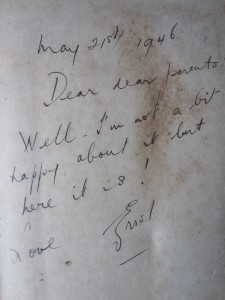 May 21st 1946.
Dear dear parents
Well - I'm not a bit
happy about it but
here it is!
Love
Errol